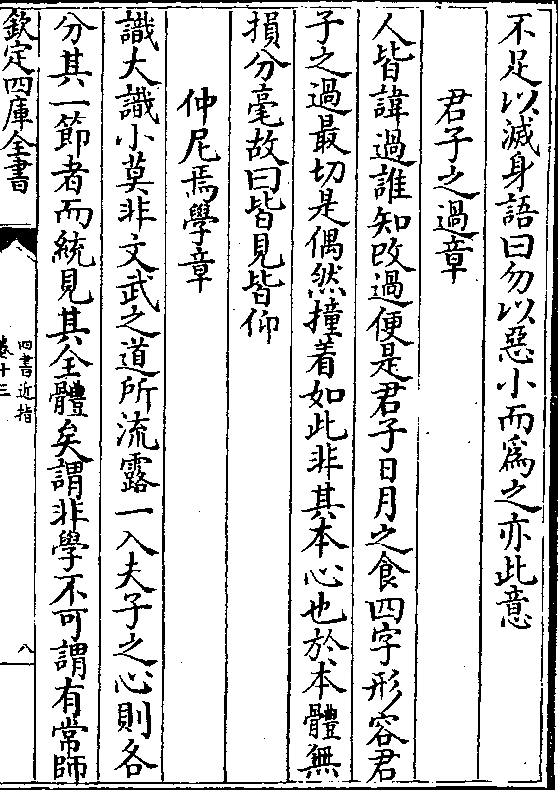 不足以滅身語曰勿以惡小而爲之亦此意
君子之過章
人皆諱過誰知改過便是君子日月之食四字形容君
子之過最切是偶然撞着如此非其本心也於本體無
損分毫故曰皆見皆仰
仲尼焉學章
識大識小莫非文武之道所流露一入夫子之心則各
分其一節者而統見其全體矣謂非學不可謂有常師
欽定四庫全書
四書近指
卷十三
八